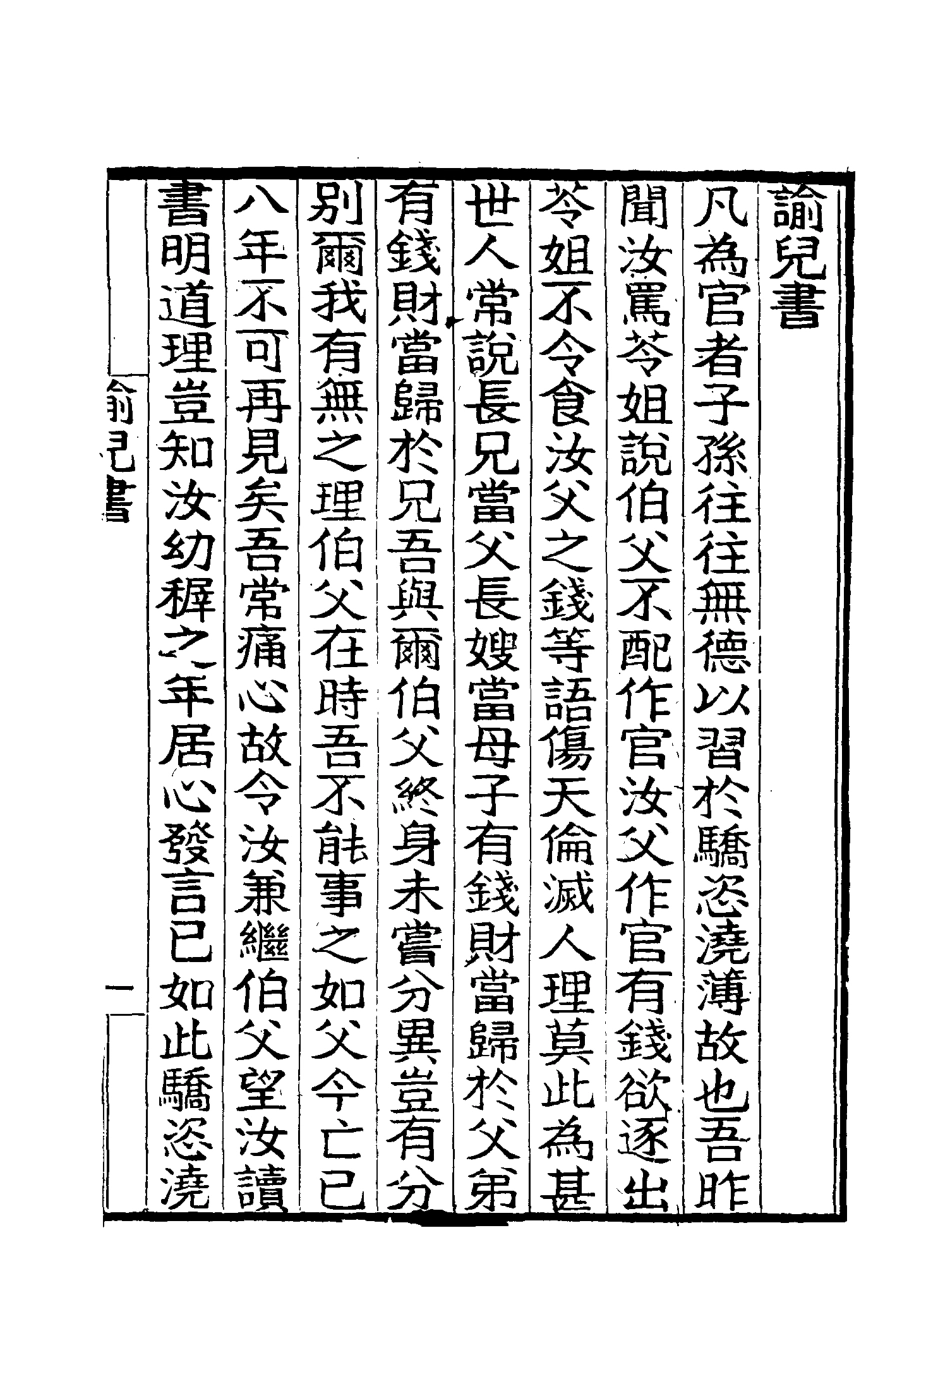 諭兒書
凡為官者子孫往往無德以習於驕恣澆薄故也吾昨
聞汝罵苓姐說伯父不配作官汝父作官有錢欲逐出
苓姐不令食汝父之錢等語傷天倫滅人理莫此為甚
世人常說長兄當父長嫂當母子有錢財當歸於父弟
有錢財當歸於兄吾與爾伯父終身未嘗分異豈有分
別爾我有無之理伯父在時吾不能事之如父今亡已
八年不可再見矣吾常痛心故令汝兼繼伯父望汝讀
書明道理豈知汝幼穉之年居心發言已如此驕恣澆
諭兒書
一